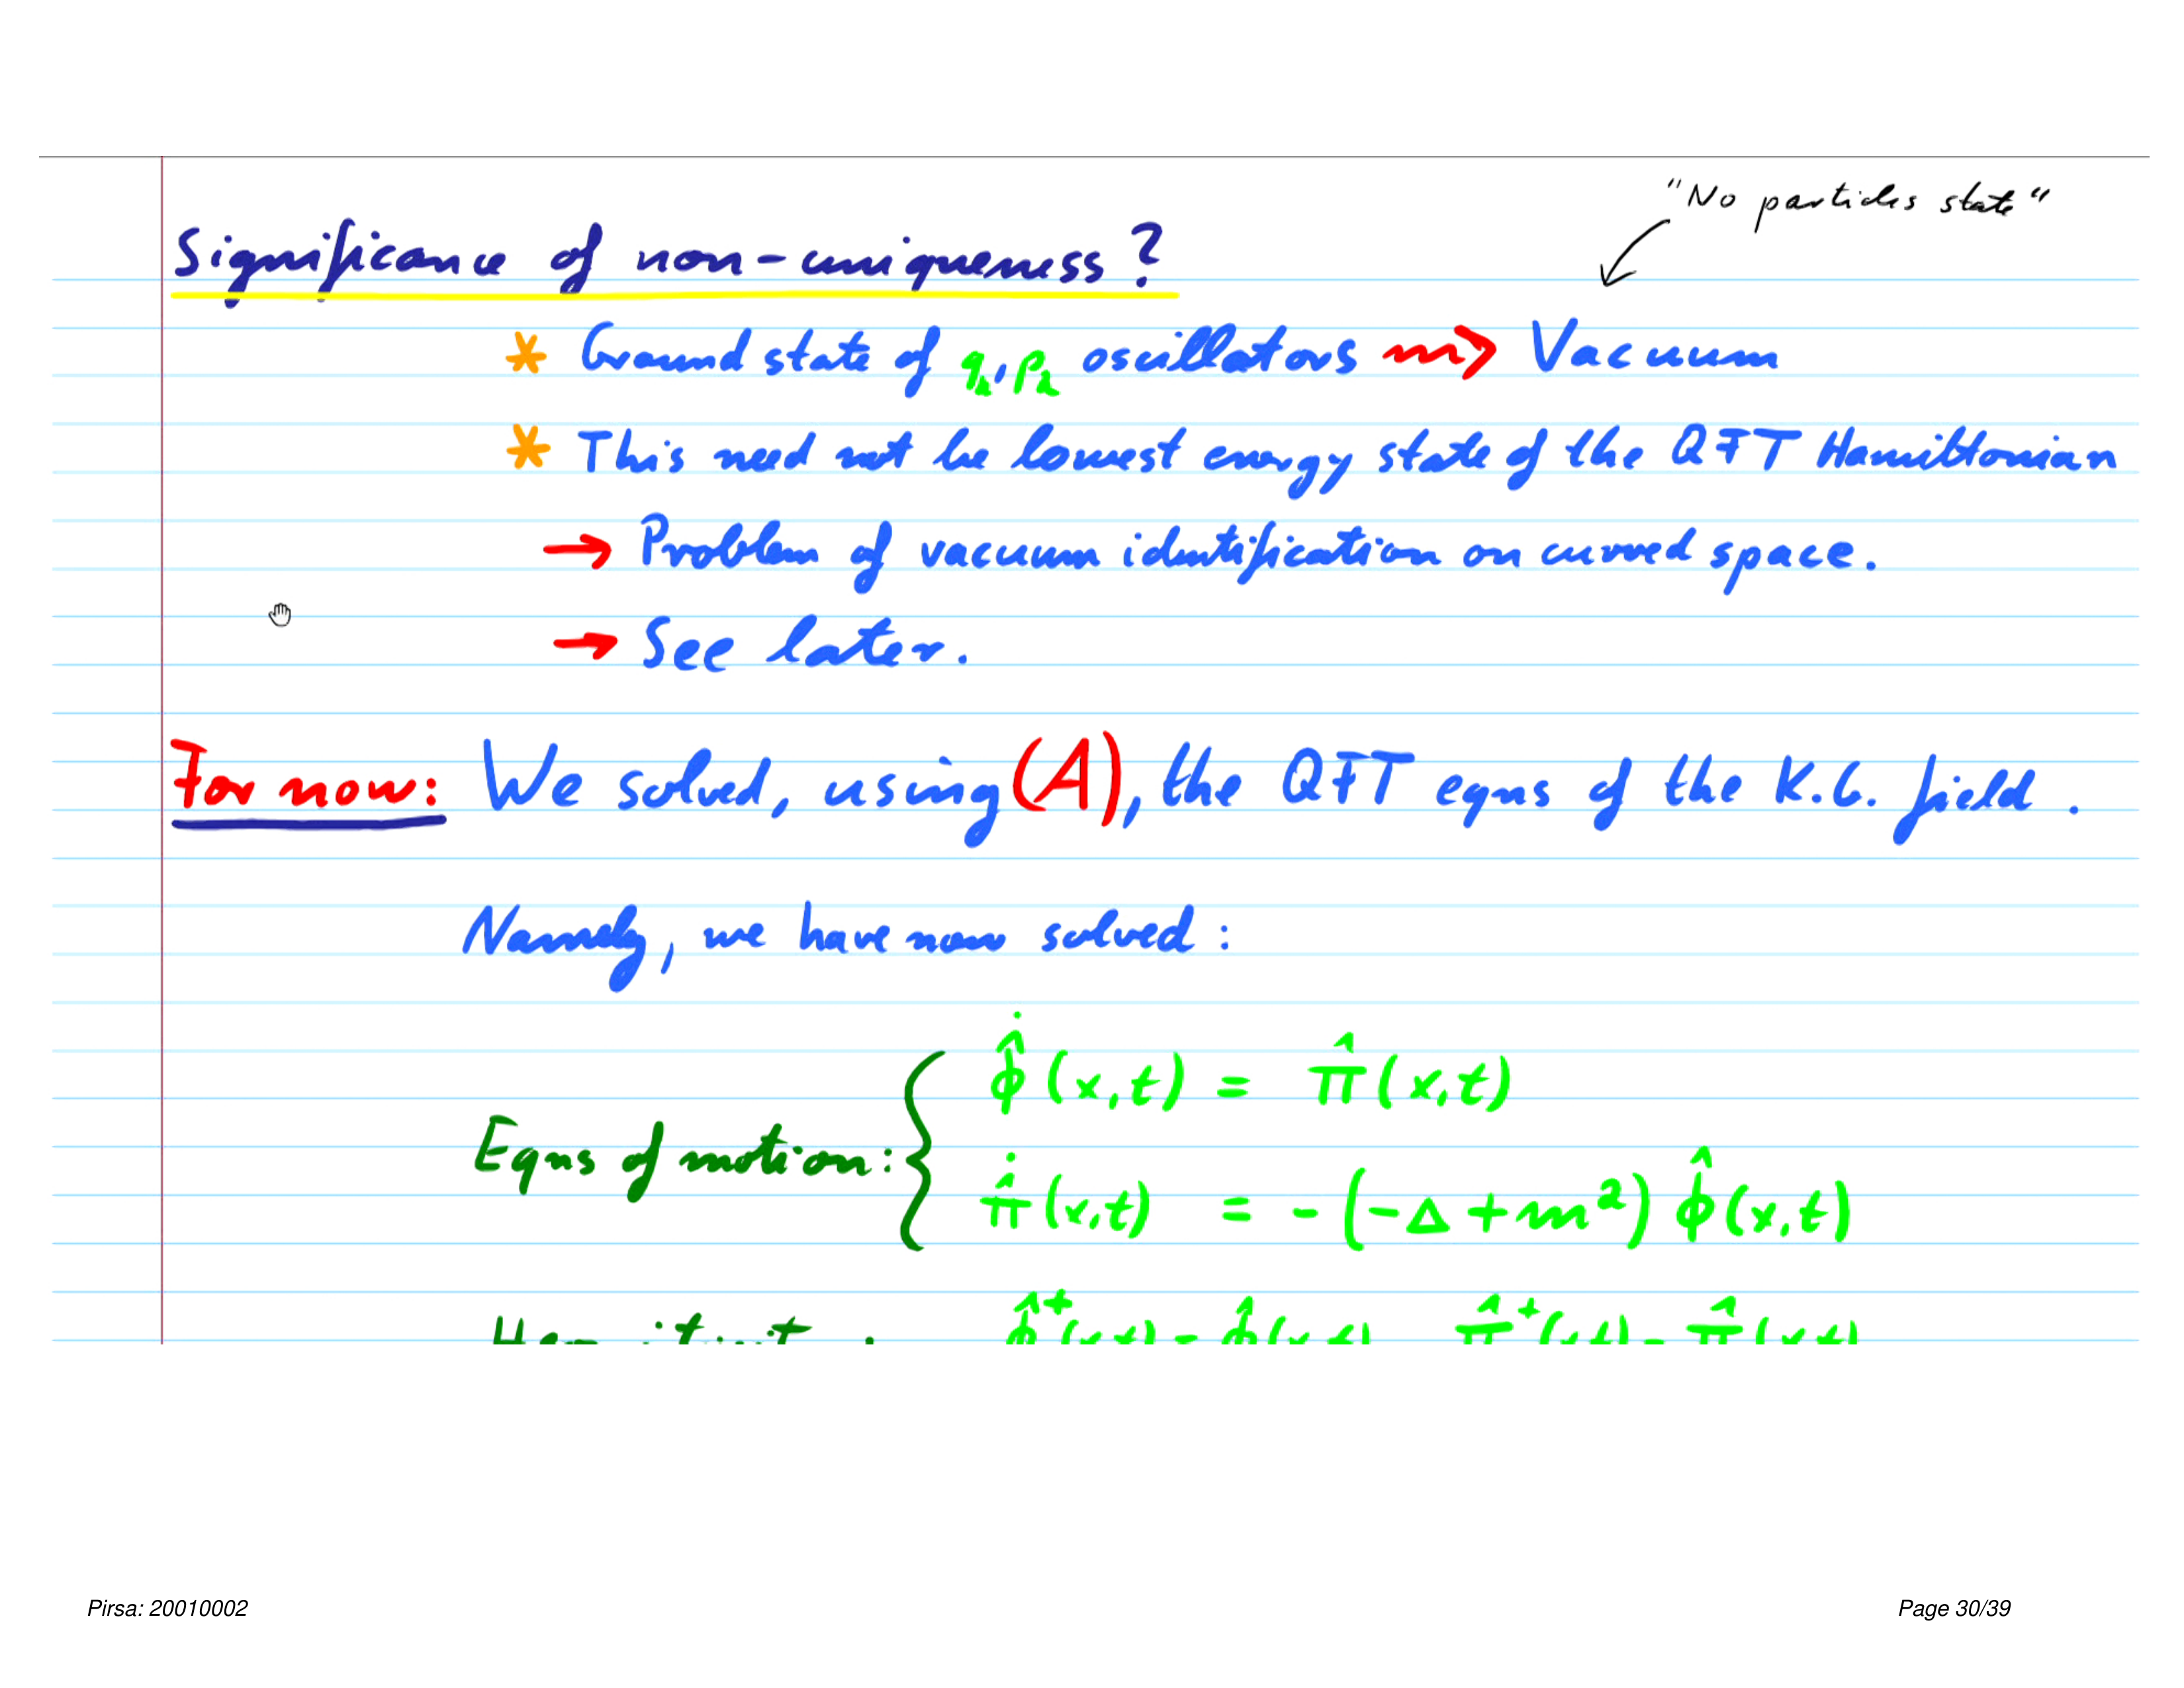 "No particles state"
Significance of non-uniqueness?
* Ground state of qₖ, pₖ oscillators ⇝ Vacuum
* This need not be lowest energy state of the QFT Hamiltonian
→ Problem of vacuum identification on curved space.
→ See later.
For now: We solved, using (A), the QFT eqns of the K.G. field.
Namely, we have now solved:
Eqns of motion: { φ̂̇(x,t) = π̂(x,t)
π̂̇(x,t) = -(-Δ+m²) φ̂(x,t)
Hermiticity: φ̂⁺(x,t) = φ̂(x,t) π̂⁺(x,t) = π̂(x,t)
Pirsa: 20010002
Page 30/39